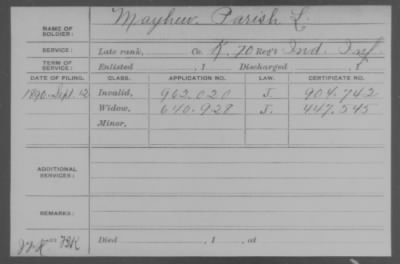 NAME OF SOLDIER: Mayhew Parish L.
SERVICE: Late rank, Co. K, 70 Reg't Ind. Inf.
TERM OF SERVICE: Enlisted , 1 Discharged , 1
DATE OF FILING. CLASS. APPLICATION NO. LAW. CERTIFICATE NO.
1890. Sept. 12 Invalid, 962.020 J. 904.742
Widow, 640.928 J. 447.545
Minor,
ADDITIONAL SERVICES:
REMARKS:
Died , 1 , at